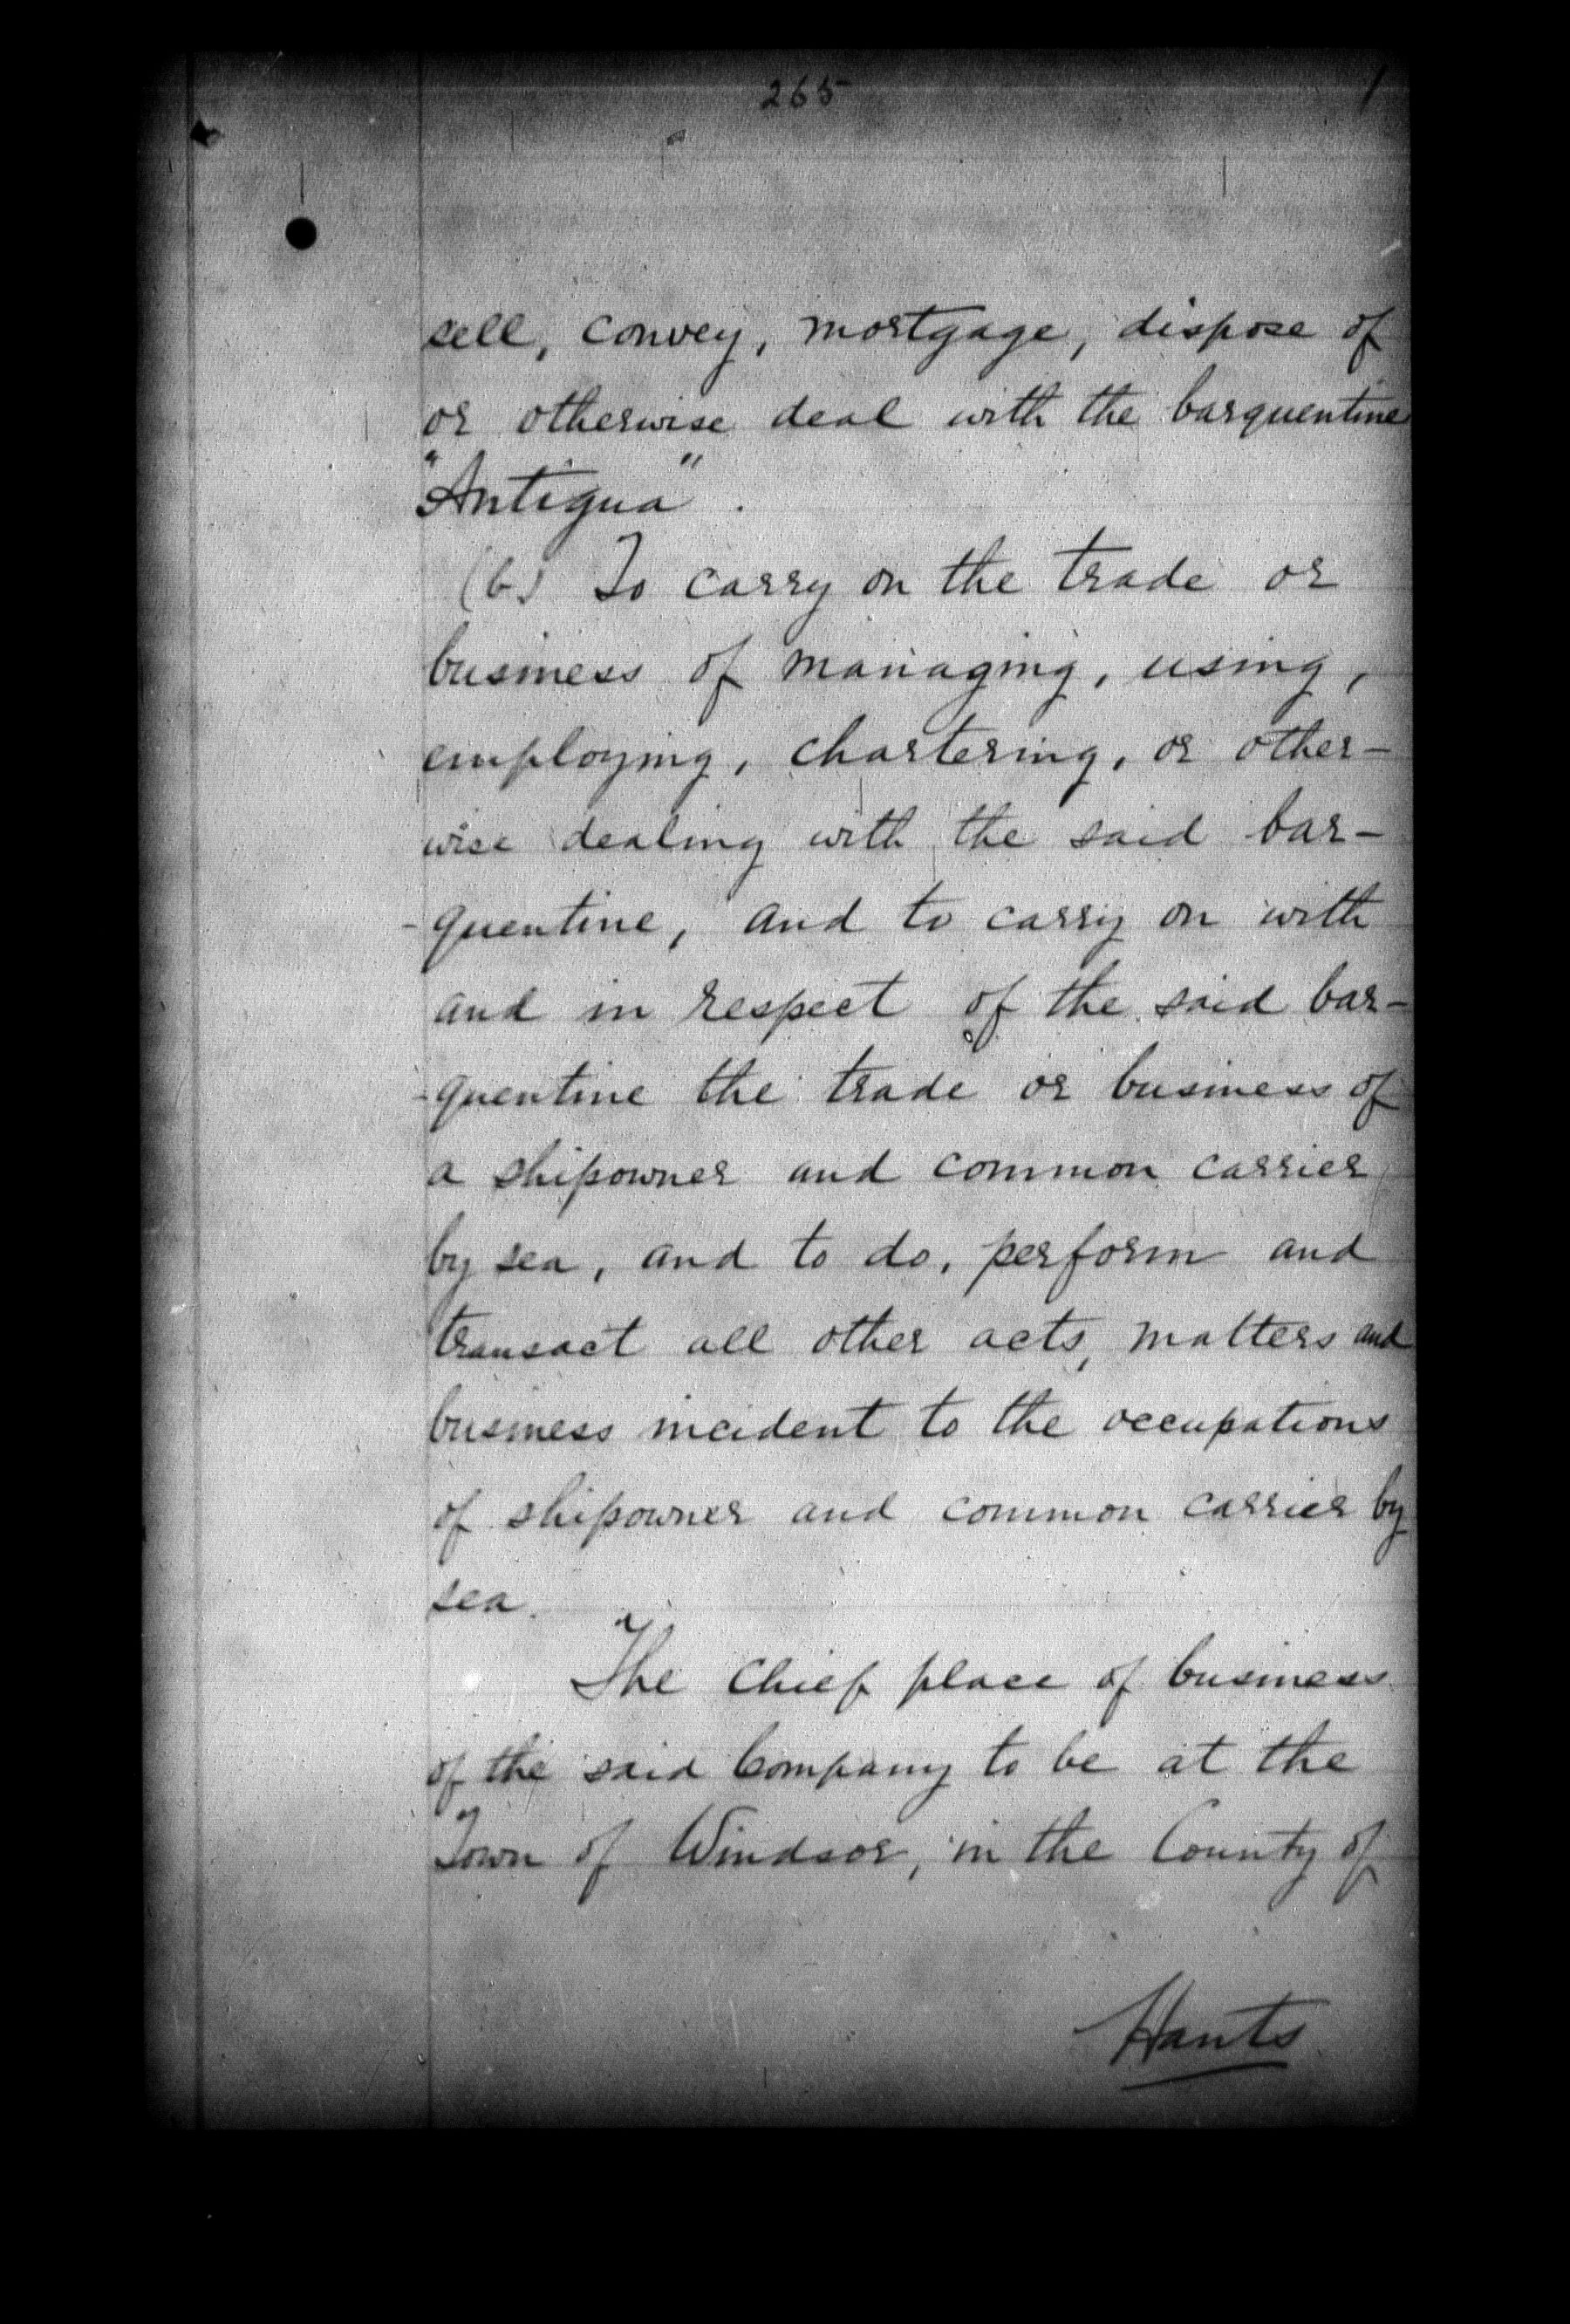 265
sell, convey, mortgage, dispose of
or otherwise deal with the barquentine
"Antigua".
(b) To carry on the trade or
business of managing, using,
employing, chartering, or other-
wise dealing with the said bar-
-quentine, and to carry on with
and in respect of the said bar-
-quentine the trade or business of
a shipowner and common carrier
by sea, and to do, perform and
transact all other acts, matters and
business incident to the occupations
of shipowner and common carrier by
sea.
The chief place of business
of the said Company to be at the
Town of Windsor, in the County of
Hants